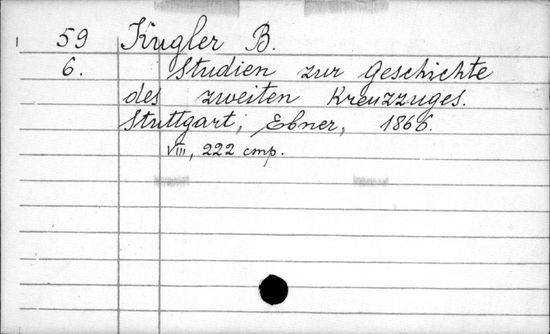 59 Kugler B.
6. Studien zur Geschichte
des zweiten Kreuzzuges.
Stuttgart, Ebner, 1866.
VIII, 222 cmp.